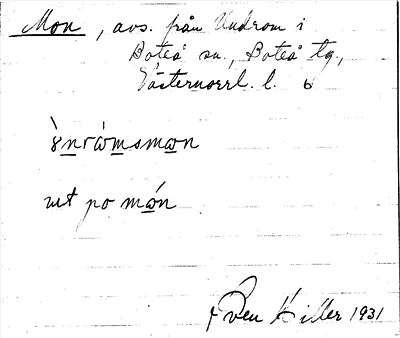 Mon, avs. från Undrom i
Boteå sn., Boteå tg.,
Västernorrl. l. 6
ut po mɷ́n
Sven Hiller 1931